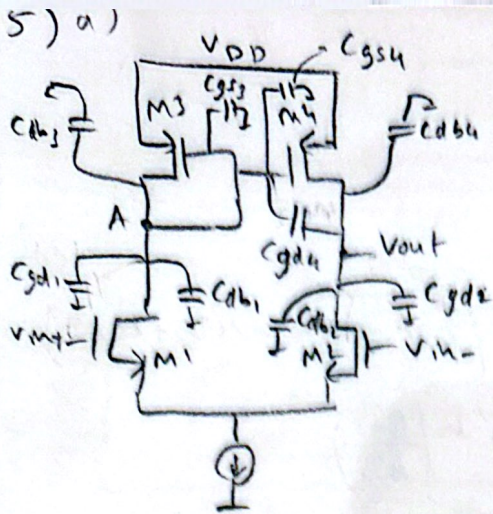 5) a)
VDD
Cgs4
Cgs3
M3
M4
Cdb3
Cdb4
A
Cgd4
Vout
Cgd1
Cdb1
Cdb2
Cgd2
Vin+
M1
M2
Vin-